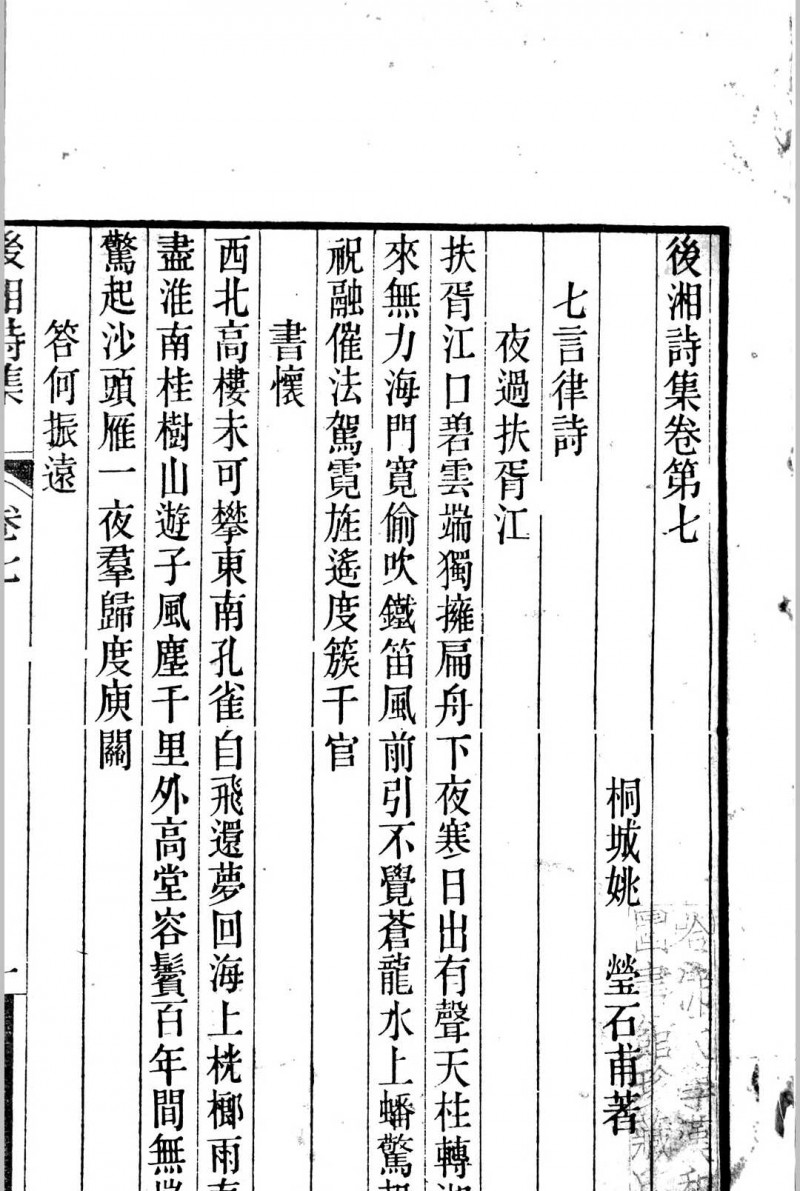 後湘詩集卷第七
桐城姚　瑩石甫著
七言律詩
夜過扶胥江
扶胥江口碧雲端獨擁扁舟下夜寒日出有聲天柱轉
來無力海門寬偷吹鐵笛風前引不覺蒼龍水上蟠驚
祝融催法駕霓旌遙度簇千官
書懷
西北高樓未可攀東南孔雀自飛還夢回海上桄榔雨
盡淮南桂樹山遊子風塵千里外高堂容鬢百年間無
驚起沙頭雁一夜羣歸度庾關
答何振遠
後湘詩集
卷七